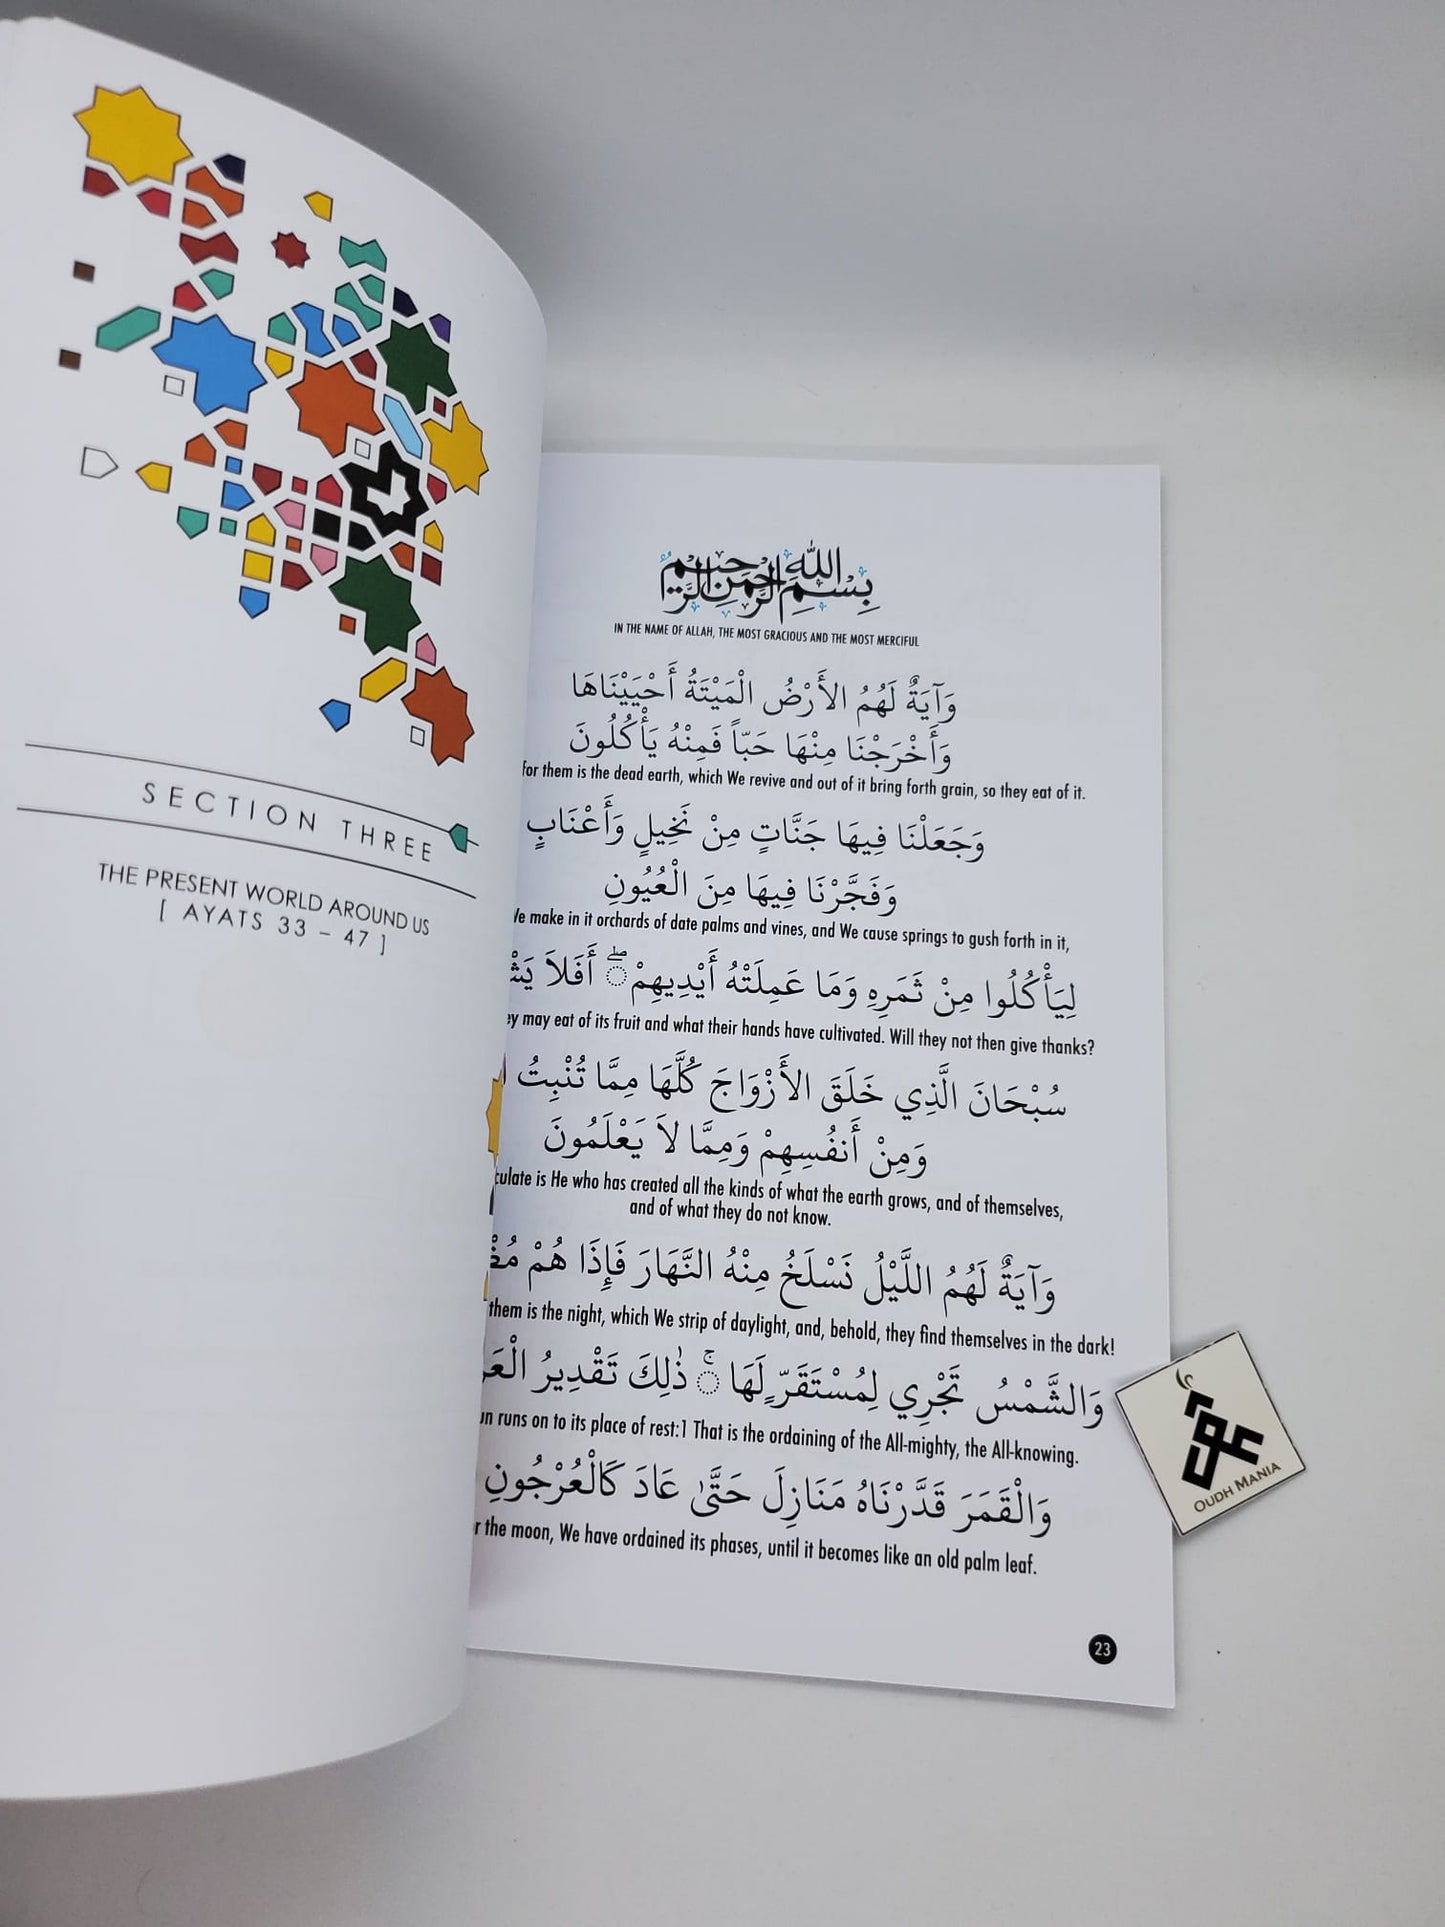 SECTION THREE
THE PRESENT WORLD AROUND US
[ AYATS 33 – 47 ]
بِسْمِ اللهِ الرَّحْمَنِ الرَّحِيمِ
IN THE NAME OF ALLAH, THE MOST GRACIOUS AND THE MOST MERCIFUL
وَآيَةٌ لَهُمُ الأَرْضُ الْمَيْتَةُ أَحْيَيْنَاهَا
وَأَخْرَجْنَا مِنْهَا حَبّاً فَمِنْهُ يَأْكُلُونَ
for them is the dead earth, which We revive and out of it bring forth grain, so they eat of it.
وَجَعَلْنَا فِيهَا جَنَّاتٍ مِنْ نَخِيلٍ وَأَعْنَابٍ
وَفَجَّرْنَا فِيهَا مِنَ الْعُيُونِ
We make in it orchards of date palms and vines, and We cause springs to gush forth in it,
لِيَأْكُلُوا مِنْ ثَمَرِهِ وَمَا عَمِلَتْهُ أَيْدِيهِمْ ۖ أَفَلاَ
may eat of its fruit and what their hands have cultivated. Will they not then give thanks?
سُبْحَانَ الَّذِي خَلَقَ الأَزْوَاجَ كُلَّهَا مِمَّا تُنْبِتُ
وَمِنْ أَنفُسِهِمْ وَمِمَّا لاَ يَعْلَمُونَ
is He who has created all the kinds of what the earth grows, and of themselves,
and of what they do not know.
وَآيَةٌ لَهُمُ اللَّيْلُ نَسْلَخُ مِنْهُ النَّهَارَ فَإِذَا هُمْ
them is the night, which We strip of daylight, and, behold, they find themselves in the dark!
وَالشَّمْسُ تَجْرِي لِمُسْتَقَرٍّ لَهَا ۚ ذٰلِكَ تَقْدِيرُ
runs on to its place of rest:1 That is the ordaining of the All-mighty, the All-knowing.
وَالْقَمَرَ قَدَّرْنَاهُ مَنَازِلَ حَتَّىٰ عَادَ كَالْعُرْجُونِ
the moon, We have ordained its phases, until it becomes like an old palm leaf.
23
عود
OUDH MANIA